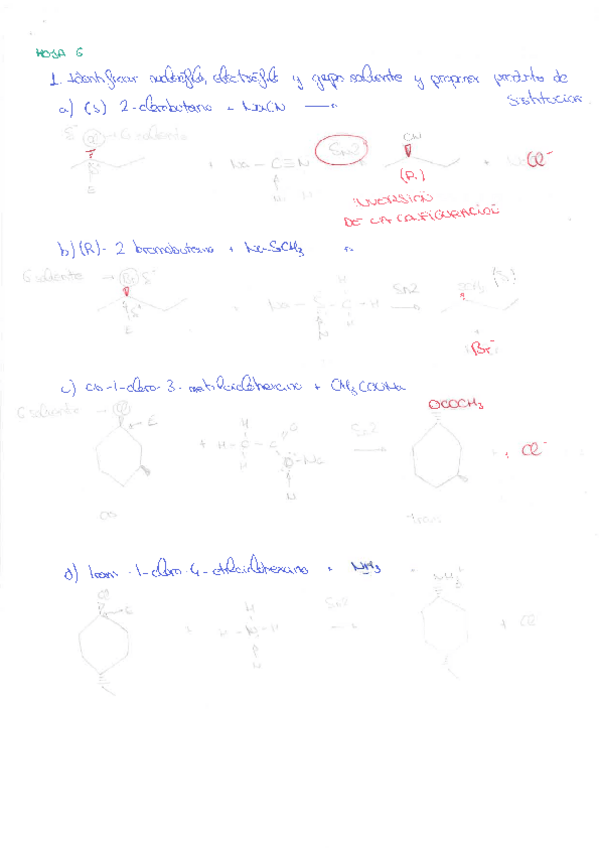 HOJA 6
1. Identificar nucleófilo, electrófilo y grupo saliente y proponer producto de
sustitución.
a) (S) 2-clorobutano + NaCN →
δ⁻ Cl → G saliente
E
+ Na - C ≡ N
N
SN2
CN
(R)
+ Cl⁻
INVERSIÓN
DE LA CONFIGURACIÓN
b) (R)- 2 bromobutano + Na-SCH3 →
G saliente → Br δ⁻
δ⁺
E
Na - S - C - H
H
N
SN2
SCH3 (S)
Br⁻
c) cis-1-cloro-3-metilciclohexano + CH3COONa
G saliente → Cl
← E
+ H - C - C
H
H
O
O - Na
N
SN2
OCOCH3
+ Cl⁻
cis
trans
d) trans-1-cloro-4-etilciclohexano + NH3 →
Cl
E
+ H - N - H
H
N
SN2
NH3⁺
+ Cl⁻